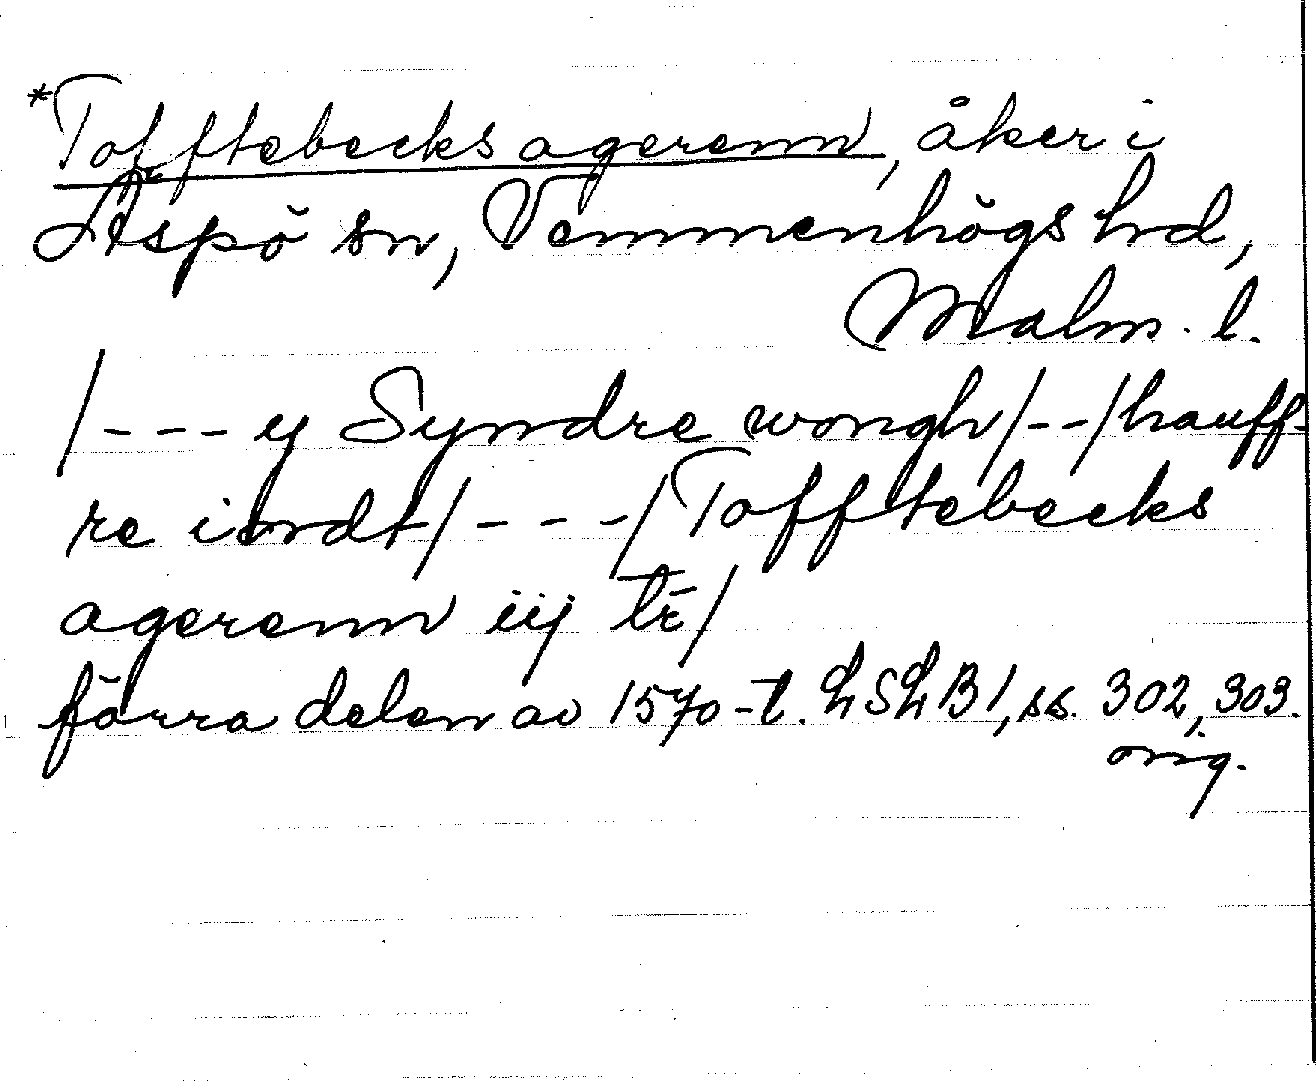 *Tofftebecks agerenn, åker i
Äspö sn, Vemmenhögs hrd,
Malm. l.
/--- y Syndre wongh/--/hauff-
re iordt/---/Tofftebecks
agerenn iij tr̄/
förra delen av 1570-t. LSLB1, ss. 302, 303.
orig.